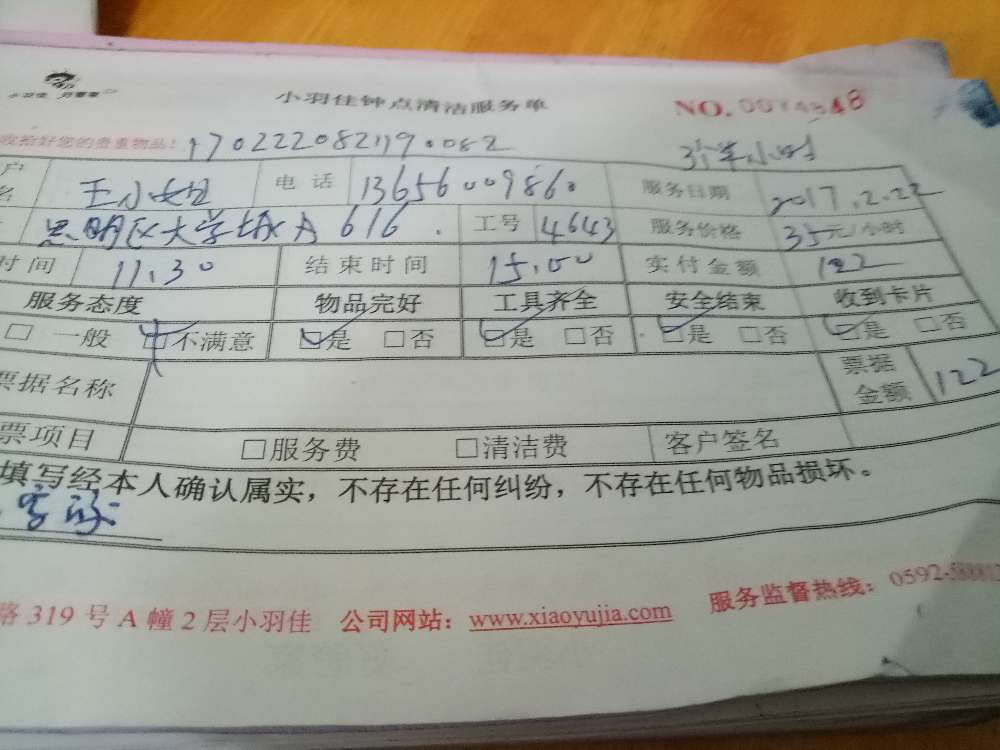 小羽佳 万家喜
小羽佳钟点清洁服务单 NO.
收拾好您的贵重物品! 3个半小时
户 王小姐 电话 13656009860 服务日期 2017.2.22
名
思明区大学城A 616. 工号 4643 服务价格 35元/小时
时间 11.30 结束时间 15.00 实付金额 122
服务态度 物品完好 工具齐全 安全结束 收到卡片
□ 一般 □不满意 □是 □否 □是 □否 □是 □否 □是 □否
票据名称 票据金额 122
票项目 □服务费 □清洁费 客户签名
填写经本人确认属实，不存在任何纠纷，不存在任何物品损坏。
路 319 号 A 幢 2 层小羽佳 公司网站：www.xiaoyujia.com 服务监督热线：